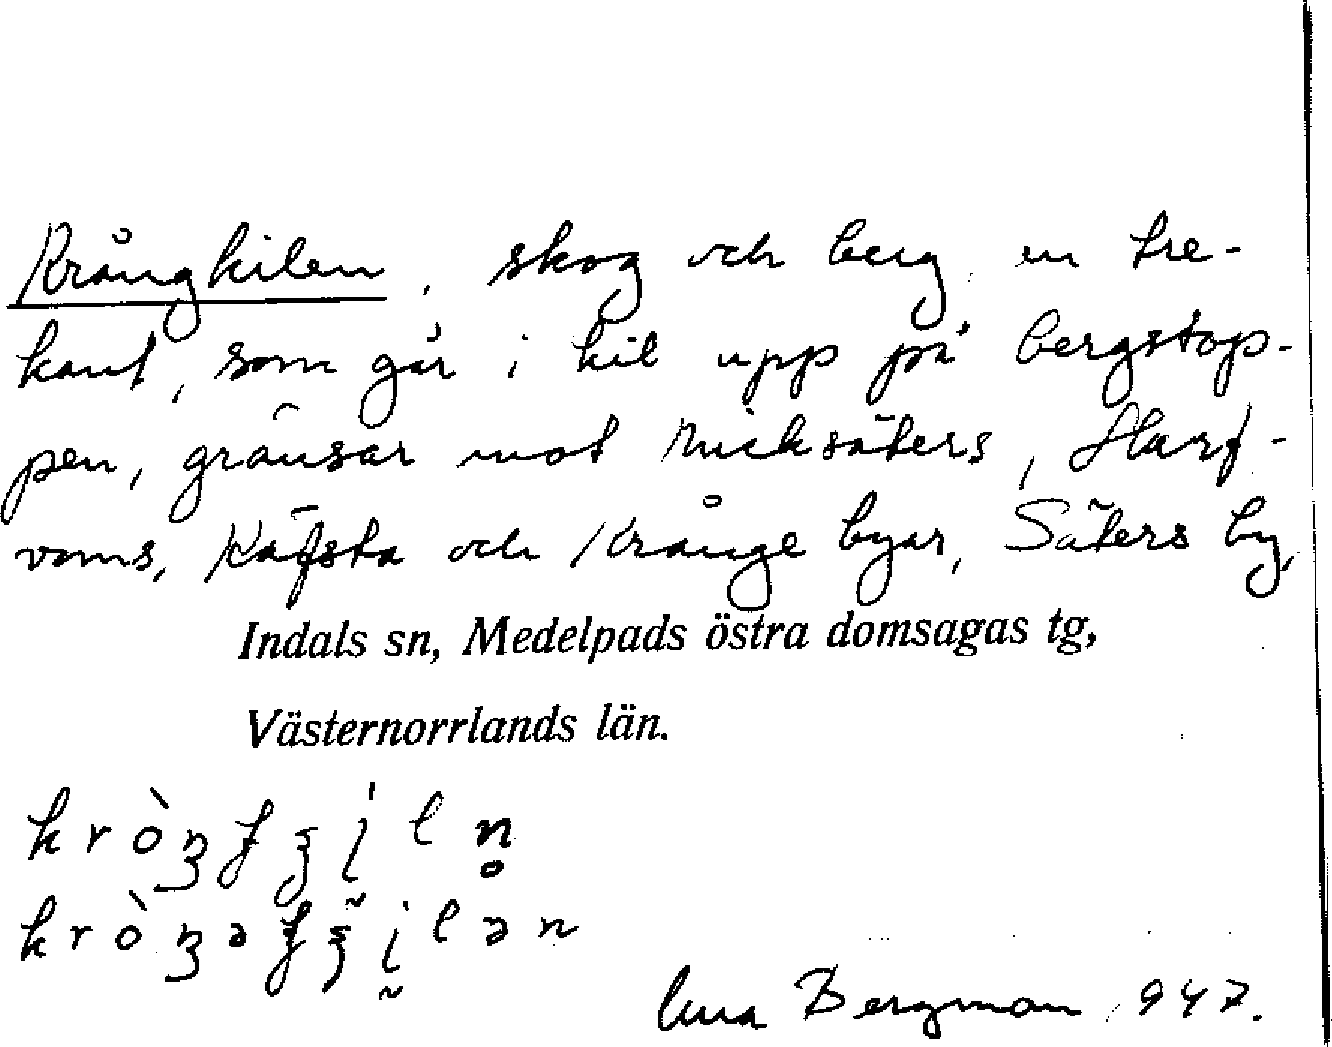 Krångkilen, skog och berg, en tre-
kant, som går i kil upp på bergstop-
pen, gränsar mot Nicksäters, Harf-
voms, Käfsta och Krånge byar, Säters by,
Indals sn, Medelpads östra domsagas tg,
Västernorrlands län.
Bergman 1947.